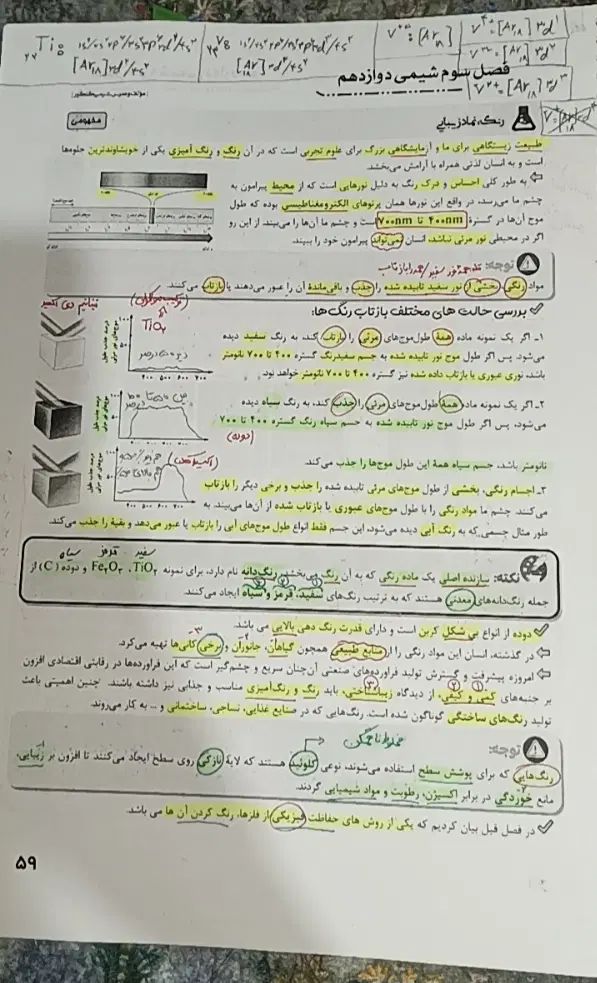 ₂₂Ti: 1s²/2s²2p⁶/3s²3p⁶3d²/4s²
[Ar₁₈]3d²/4s²
₂₃V: 1s²/2s²2p⁶/3s²3p⁶3d³/4s²
[Ar]3d³/4s²
V⁵⁺: [Ar₁₈]
V⁴⁺= [Ar₁₈] 3d¹
V³⁺= [Ar₁₈] 3d²
V²⁺= [Ar₁₈] 3d³
فصل سوم شیمی دوازدهم
رنگ، نماد زیبایی
مفهومی
طبیعت زیستگاهی برای ما و آزمایشگاهی بزرگ برای علوم تجربی است که در آن رنگ و رنگ آمیزی یکی از خوشایندترین جلوه‌ها
است و به انسان لذتی همراه با آرامش می‌بخشد.
به طور کلی احساس و درک رنگ به دلیل نورهایی است که از محیط پیرامون به
چشم ما می‌رسد، در واقع این نورها همان پرتوهای الکترومغناطیسی بوده که طول
موج آن‌ها در گسترهٔ ۴۰۰nm تا ۷۰۰nm است و چشم ما آن‌ها را می‌بیند. از این رو
اگر در محیطی نور مرئی نباشد، انسان نمی‌تواند پیرامون خود را ببیند.
توجه:
مواد رنگی بخشی از نور سفید تابیده شده را جذب و باقی‌ماندهٔ آن را عبور می‌دهند یا بازتاب می‌کنند.
بررسی حالت های مختلف بازتاب رنگ‌ها:
TiO₂
۱- اگر یک نمونه ماده همهٔ طول موج‌های مرئی را بازتاب کند، به رنگ سفید دیده
می‌شود. پس اگر طول موج نور تابیده شده به جسم سفیدرنگ گستره ۴۰۰ تا ۷۰۰ نانومتر
باشد، نوری عبوری یا بازتاب داده شده نیز گستره ۴۰۰ تا ۷۰۰ نانومتر خواهد بود.
۲- اگر یک نمونه ماده همهٔ طول موج‌های مرئی را جذب کند، به رنگ سیاه دیده
می‌شود، پس اگر طول موج نور تابیده شده به جسم سیاه رنگ گستره ۴۰۰ تا ۷۰۰
(دوده)
نانومتر باشد، جسم سیاه همهٔ این طول موج‌ها را جذب می‌کند.
۳- اجسام رنگی، بخشی از طول موج‌های مرئی تابیده شده را جذب و برخی دیگر را بازتاب
می‌کنند. چشم ما مواد رنگی را با طول موج‌های عبوری یا بازتاب شده از آن‌ها می‌بیند. به
طور مثال جسمی که به رنگ آبی دیده می‌شود، این جسم فقط انواع طول موج‌های آبی را بازتاب یا عبور می‌دهد و بقیهٔ را جذب می‌کند.
سفید قرمز سیاه
نکته: سازنده اصلی یک ماده رنگی که به آن رنگ می‌بخشد، رنگ‌دانه نام دارد، برای نمونه TiO₂ ،Fe₂O₃ و دوده (C) از
جمله رنگ‌دانه‌های معدنی هستند که به ترتیب رنگ‌های سفید، قرمز و سیاه ایجاد می‌کنند.
دوده از انواع بی شکل کربن است و دارای قدرت رنگ دهی بالایی می باشد.
در گذشته، انسان این مواد رنگی را از منابع طبیعی همچون گیاهان، جانوران و برخی کانی‌ها تهیه می‌کرد.
امروزه پیشرفت و گسترش تولید فراورده‌های صنعتی آن‌چنان سریع و چشم‌گیر است که این فراورده‌ها در رقابتی اقتصادی افزون
بر جنبه‌های کمی و کیفی، از دیدگاه زیباشناختی، باید رنگ و رنگ‌آمیزی مناسب و جذابی نیز داشته باشند. چنین اهمیتی باعث
تولید رنگ‌های ساختگی گوناگون شده است. رنگ‌هایی که در صنایع غذایی، نساجی، ساختمانی و ... به کار می‌روند.
توجه:
رنگ‌هایی که برای پوشش سطح استفاده می‌شوند، نوعی کلوئید هستند که لایهٔ نازکی روی سطح ایجاد می‌کنند تا افزون بر زیبایی،
مانع خوردگی در برابر اکسیژن، رطوبت و مواد شیمیایی گردند.
در فصل قبل بیان کردیم که یکی از روش های حفاظت فیزیکی از فلزها، رنگ کردن آن ها می باشد.
۵۹